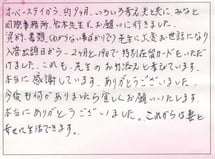 オーバーステイから、約9ヶ月、いろいろ考えた末に、みなと
国際事務所、松本先生にお願いに行きました。
資料、書類(わからない事ばかり)先生に大変お世話になり
入管出頭日から、2ヶ月と19日で特別在留カードをいただ
けました。これも、先生のお力添えと考えています。
本当に感謝しています。ありがとうございました。
今後も何かありましたら宜しくお願いいたします。
本当にありがとうございました。これからは妻と
幸せに生活できます。